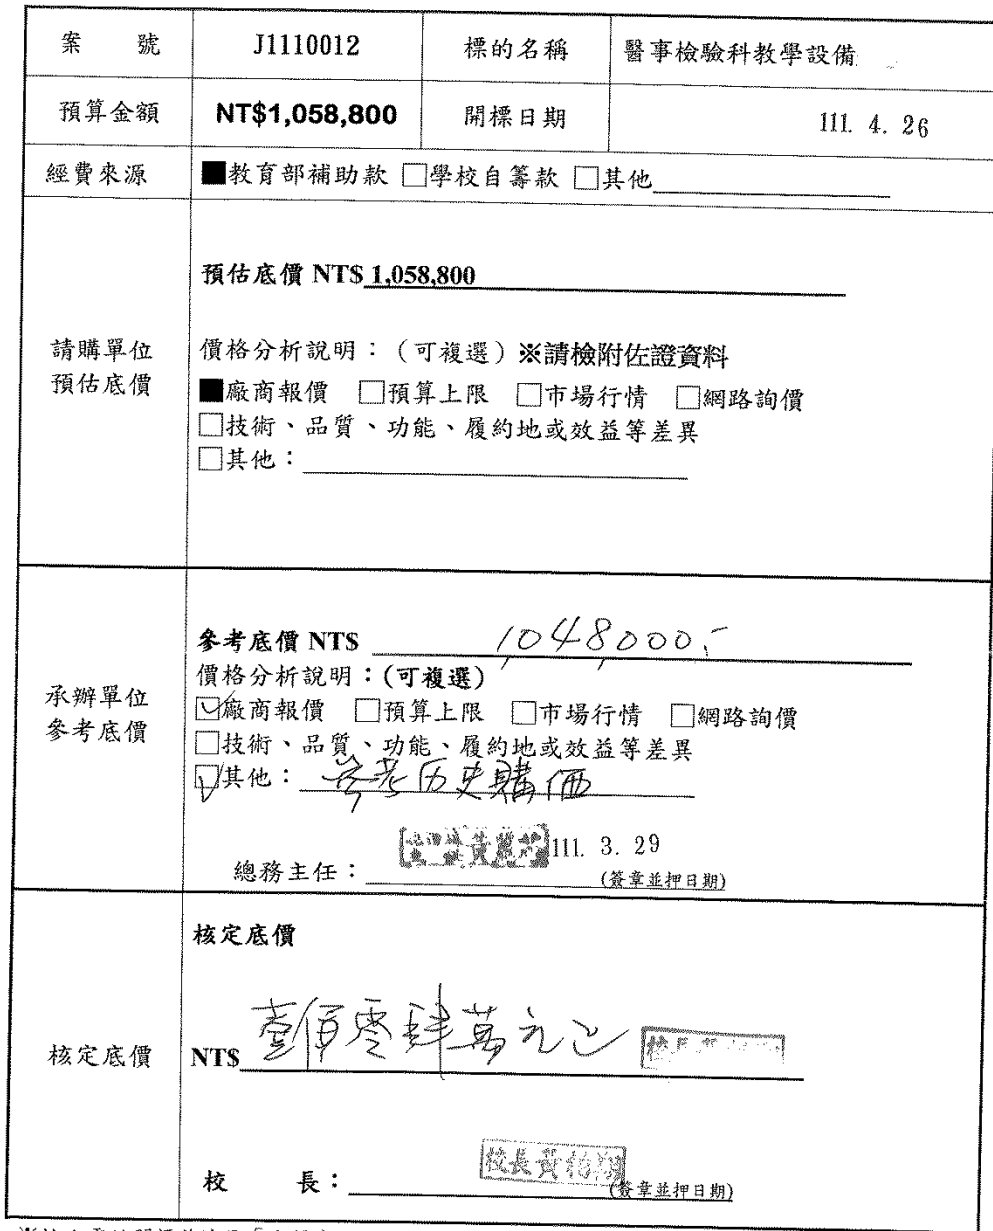 案 號 J1110012 標的名稱 醫事檢驗科教學設備
預算金額 NT$1,058,800 開標日期 111. 4. 26
經費來源 ■教育部補助款 □學校自籌款 □其他
預估底價 NT$ 1,058,800
請購單位
預估底價
價格分析說明：（可複選）※請檢附佐證資料
■廠商報價 □預算上限 □市場行情 □網路詢價
□技術、品質、功能、履約地或效益等差異
□其他：
承辦單位
參考底價
參考底價 NT$ 1,048,000.-
價格分析說明：(可複選)
☑廠商報價 □預算上限 □市場行情 □網路詢價
□技術、品質、功能、履約地或效益等差異
☑其他：參考历史購價
111. 3. 29
總務主任：
(簽章並押日期)
核定底價
核定底價
NT$ 壹佰零肆萬元正
校長
校長黃柏翔
校 長：
(簽章並押日期)